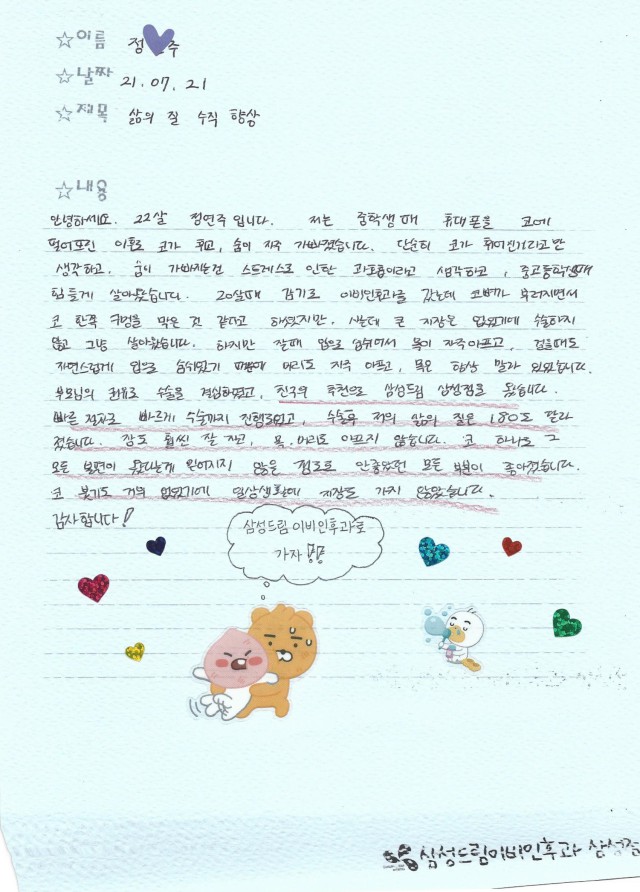 ☆이름 정 주
☆날짜 21.07.21
☆제목 삶의 질 수직 향상
☆내용
안녕하세요. 22살 정연주입니다. 저는 중학생때 휴대폰을 코에
떨어뜨린 이후로 코가 휘고, 숨이 자주 가빠졌습니다. 단순히 코가 휘어진거라고만
생각하고, 숨이 가빠지는건 스트레스로 인한 과호흡이라고 생각하고, 중고등학생때
힘들게 살아왔습니다. 20살때 감기로 이비인후과를 갔는데 코뼈가 부러지면서
코 한쪽 구멍을 막은 것 같다고 하셨지만. 사는데 큰 지장은 없었기에 수술하지
않고 그냥 살아왔습니다. 하지만 잘때 입으로 숨쉬어서 목이 자주아프고, 걸을때도
자연스럽게 입으로 숨쉬었기 때문에 머리도 자주 아프고, 목은 항상 말라 있었습니다.
부모님의 권유로 수술을 결심하였고, 친구의 추천으로 삼성드림 삼성점을 왔습니다.
빠른 절차로 빠르게 수술까지 진행되었고, 수술후 저의 삶의 질은 180도 달라
졌습니다. 잠도 훨씬 잘 자고, 목, 머리도 아프지 않습니다. 코 하나로 그
모든 불편이 왔다는게 믿어지지 않을 정도로 안좋았던 모든 부분이 좋아졌습니다.
코 붓기도 거의 없었기에 일상생활에 지장도 가지 않았습니다.
감사합니다!
삼성드림 이비인후과로
가자 !!
삼성드림이비인후과 삼성점